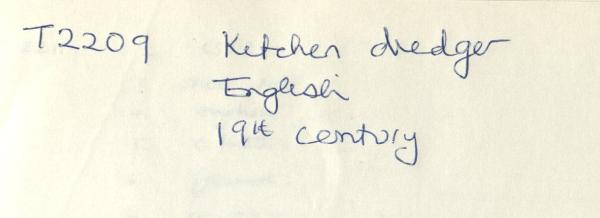 T2209 Kitchen dredger
English
19th century